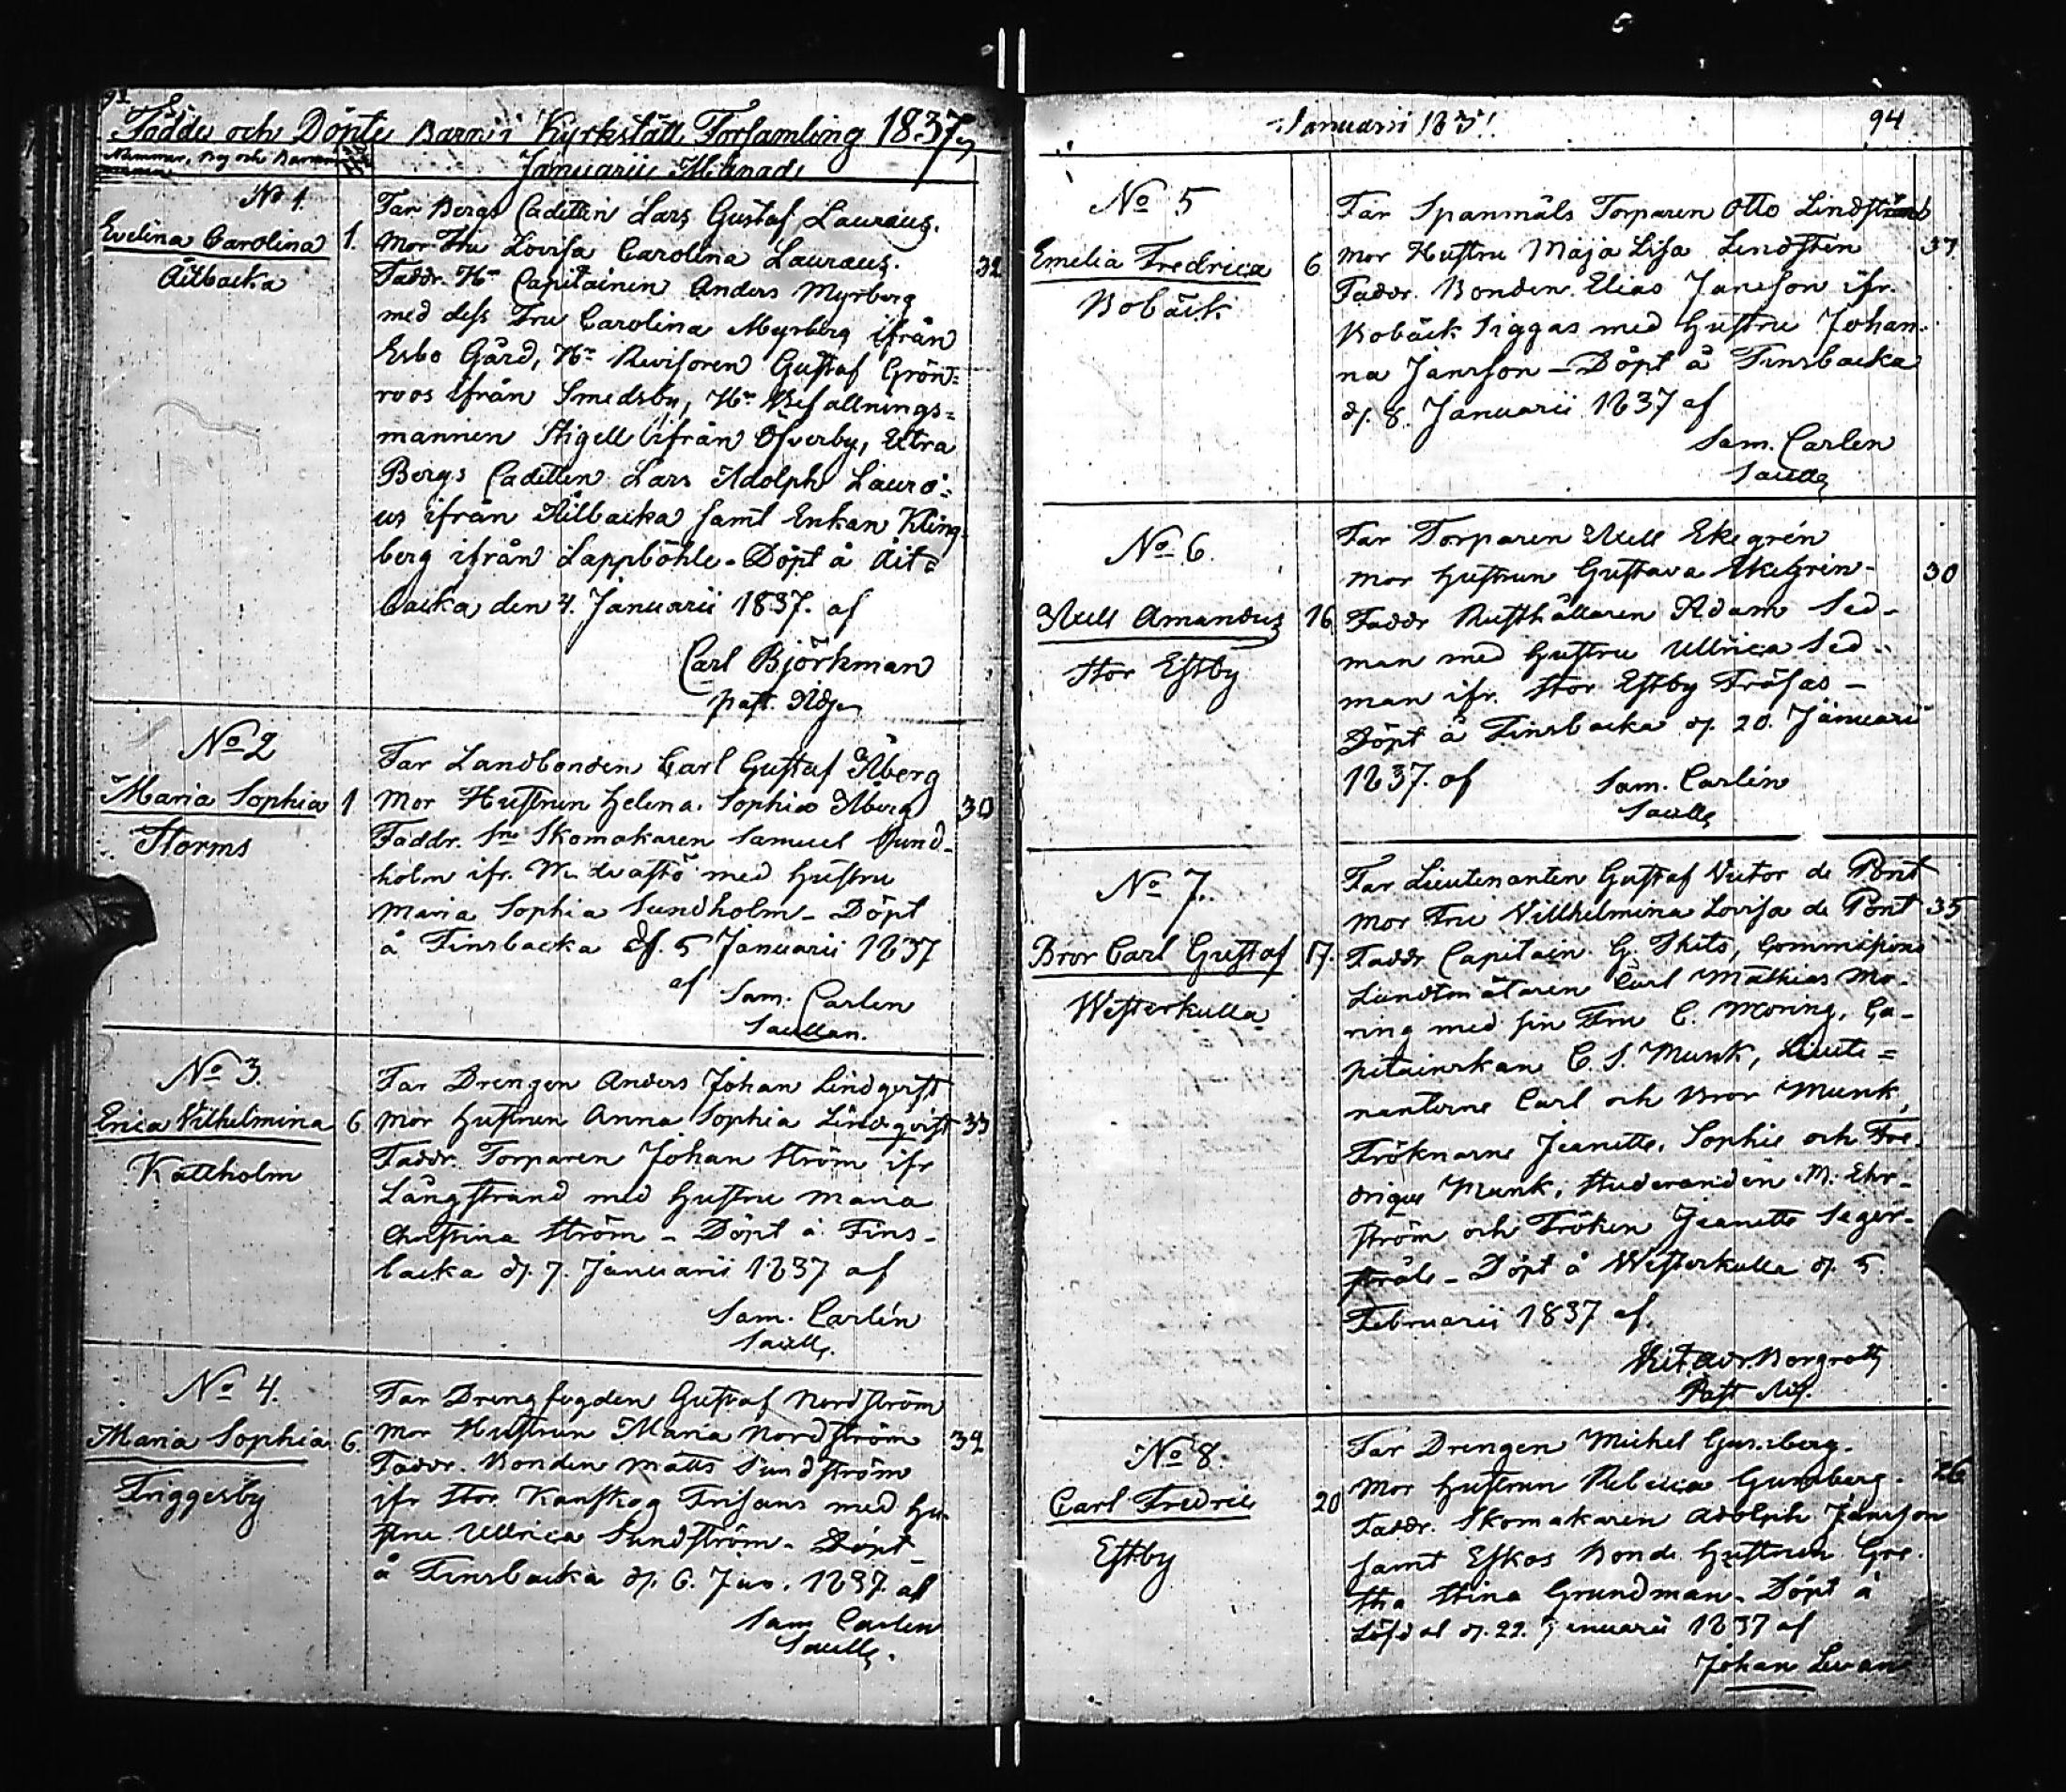 Födde och Döpte Barn i Kyrkslätt Församling 1837,
Nummer, By och Barnens
Januarii Månad
No 1.
Evelina Carolina 1.
Åitbacka
Far Bergs Cadetten Lars Gustaf Lauræus.
Mor Fru Lovisa Carolina Lauræus. 32
Faddr. Hr Capitainen Anders Myrberg
med dess Fru Carolina Myrberg ifrån
Esbo Gård, Hr Revisoren Gustaf Grön=
roos ifrån Smedsby, Hr Befallnings=
mannen Stigell ifrån Öfverby, Extra
Bergs Cadetten Lars Adolph Lauræ=
us ifrån Åitbacka samt Enkan Kling
berg ifrån Lappböhle. Döpt å Åit=
backa den 4. Januarii 1837. af
Carl Björkman
past. Adj.
No 2
Maria Sophia 1
Storms
Far Landbonden Carl Gustaf Åberg
Mor Hustrun Helena Sophia Åberg 30
Faddr. Skomakaren Samuel Sund-
holm ifr. med Hustru
Maria Sophia Sundholm - Döpt
å Finsbacka d. 5 Januarii 1837
af Sam. Carlen
Sacellan.
No 3.
Erica Vilhelmina 6
Kattholm
Far Drengen Anders Johan Lindqvist
Mor Hustrun Anna Sophia Lindqvist 33
Faddr. Torparen Johan Ström ifr
Långstrand med Hustru Maria
Christina Ström - Döpt å Fins-
backa d. 7. Januarii 1837 af
Sam. Carlén
Sacell.
No 4.
Maria Sophia 6.
Friggesby
Far Drengfogden Gustaf Nordström
Mor Hustrun Maria Nordström 32
Faddr. Bonden Matts Sundström
ifr Stor Kanskog Frisans med Hu-
stru Ullrica Sundström - Döpt
å Finsbacka d. 6. Jan. 1837. af
Sam Carlen
Sacell.
Januarii 1837. 94
No 5
Emelia Fredrica 6
Bobäck
Far Spanmåls Torparen Otto
Mor Hustru Maja Lisa Lindsten 37
Faddr. Bonden Elias Jansson ifr.
Bobäck Siggas med Hustru Johan-
na Jansson - Döpt å Finsbacka
d. 8. Januarii 1837 af
Sam. Carlen
Sacell.
No 6.
Axell Amandus 16
Stor Estby
Far Torparen Axell Ekegrén
Mor Hustrun Gustava Ekegren - 30
Faddr Rusthållaren Adam Sed-
man med Hustru Ullrica Sed-
man ifr. Stor Estby Fråsas -
Döpt å Finsbacka d. 20. Januarii
1837. af Sam. Carlén
Sacell.
No 7.
Bror Carl Gustaf 17.
Westerkulla
Far Lieutenanten Gustaf Victor de Pont
Mor Fru Villhelmina Lovisa de Pont 35
Faddr Capitain G. Commissions
Landtmätaren Carl Mathias Mo-
ring med sin Fru C. Moring, Ca-
pitainskan C. S. Munk, Lieute=
nanterne Carl och Bror Munk,
Fröknarne Jeanette, Sophie och Fre-
drique Munk, Studeranden M. Ehr-
ström och Fröken Jeanette Seger-
stråle - Döpt å Westerkulla d. 5.
Februarii 1837 af
Past Adj.
No 8.
Carl Fredric 20
Estby
Far Drengen Michel Gunsberg.
Mor Hustrun Rebecca Gunsberg. 26
Faddr. Skomakaren Adolph Jansson
samt Eskas Bonde Hustrun Gre-
tha Stina Grundman - Döpt å
d. 22. Januarii 1837 af
Johan